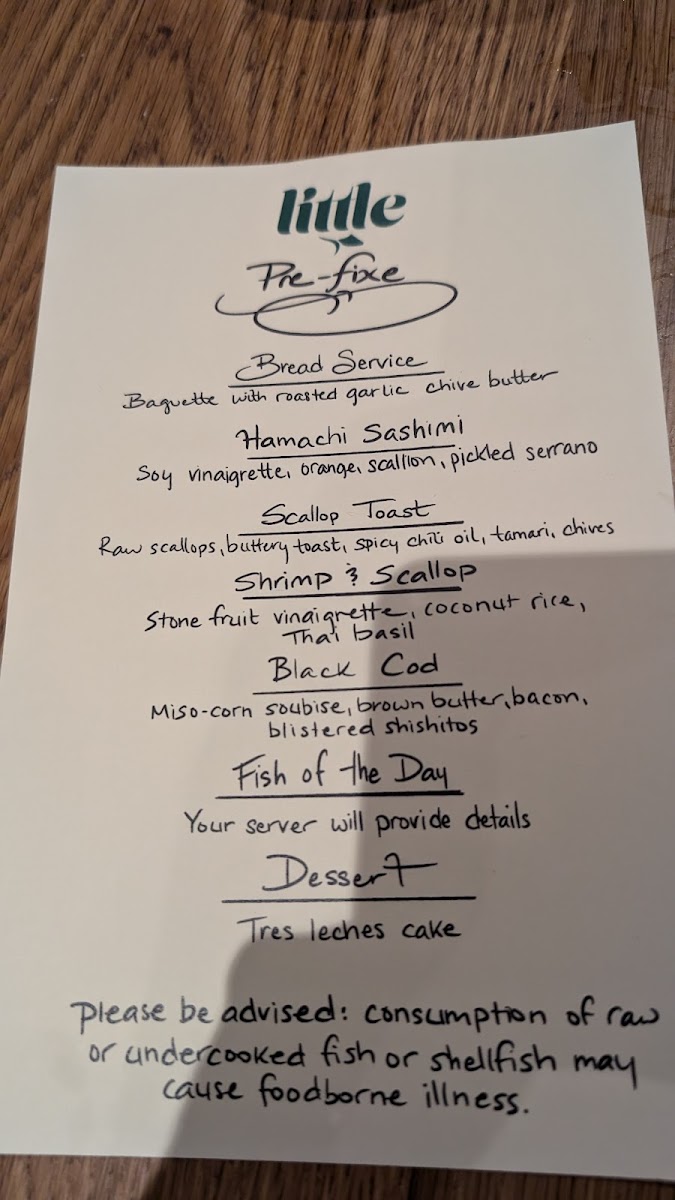 little
Pre-fixe
Bread Service
Baguette with roasted garlic chive butter
Hamachi Sashimi
Soy vinaigrette, orange, scallion, pickled serrano
Scallop Toast
Raw scallops, buttery toast, spicy chili oil, tamari, chives
Shrimp & Scallop
Stone fruit vinaigrette, coconut rice,
Thai basil
Black Cod
Miso-corn soubise, brown butter, bacon,
blistered shishitos
Fish of the Day
Your server will provide details
Dessert
Tres leches cake
Please be advised: consumption of raw
or undercooked fish or shellfish may
cause foodborne illness.